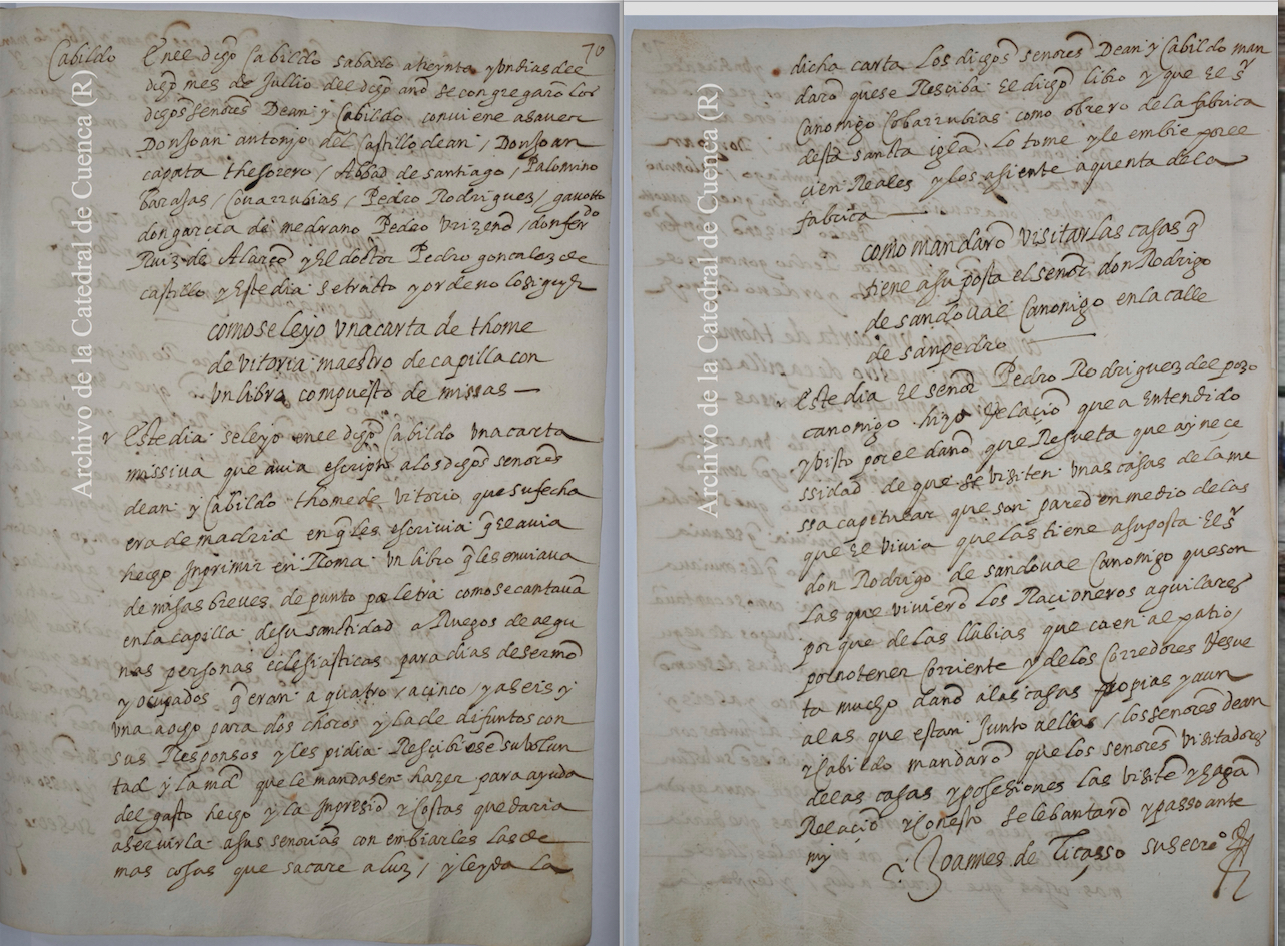 70
Cabildo
En el dicho Cabildo sabado a treynta y un dias del
dicho mes de Jullio del dicho año se congregarō los
dichos señores Dean y Cabildo conviene a saver
Don Joan antonio del Castillo dean / Don Joan
capata thesorero / Abbad de santiago / Palomino
Barajas / Covarrubias / Pedro Rodriguez / gavotto
don garcia de medrano Pedro Vrizeno / don ferdo
Ruiz de Alarcō y El doctor Pedro gonçalez de
castillo y Este dia se tratto y ordeno lo siguye
como se leyo vna carta de thome
de vitoria maestro de capilla con
vn libro compuesto de missas
Este dia se leyo en el dicho Cabildo vna carta
missiva que avia escripto a los dichos señores
dean y Cabildo thome de Vitorio que su fecha
era de madrid en q̄ les escrivia q̄ el avia
hecho Inprimir en Roma vn libro q̄ les enviava
de misas breves de punto po letra como se cantavā
en la capilla de su sanctidad a Ruegos de algu
nas personas eclesiasticas para dias de sermō
y ocupados q̄ eran a quatro y a cinco / y a seis y
vna a ocho para dos choros y la de difuntos con
sus Responsos y les pidia Rescibiesē su volun
tad y la md que le mandasen hazer para ayuda
del gasto hecho y la Inpresiō y Costas que daria
a servirla a sus señorias con embiarles las de
mas cosas que sacare a luz / y leyda la
dicha carta Los dichos señores Dean y Cabildo man
darō que se Resciba El dicho libro y que El sr
Canonigo Cobarrubias como obrero de la fabrica
desta sancta iglā lo tome y le embie por el
cien Reales y los asiente a quenta de la
fabrica
como mandarō visitar las casas q̄
tiene a su posta el señor don Rodrigo
de sandoval Canonigo en la calle
de san pedro
Este dia El señor Pedro Rodriguez del pozo
canonigo hizo Relaciō que a Entendido
y visto por el daño que Resulta que ay nece
ssidad de que se visiten vnas casas de la me
ssa capitular que son pared en medio de las
que El vivia que las tiene a su posta El sr
don Rodrigo de sandoval Canonigo que son
Las que vivierō los Racioneros aguilares
por que de las llubias que caen al patio /
por no tener Corriente y de los Corredores Resul
ta mucho daño a las casas propias y aun
a las que estan Junto a ellas / los señores dean
y Cabildo mandarō que los señores visitadores
de las casas y posesiones las visitē y hagā
Relaciō y Con esto se lebantarō y passo ante
my
Joannes de Ticasso su secrio
Archivo de la Catedral de Cuenca (R)
Archivo de la Catedral de Cuenca (R)